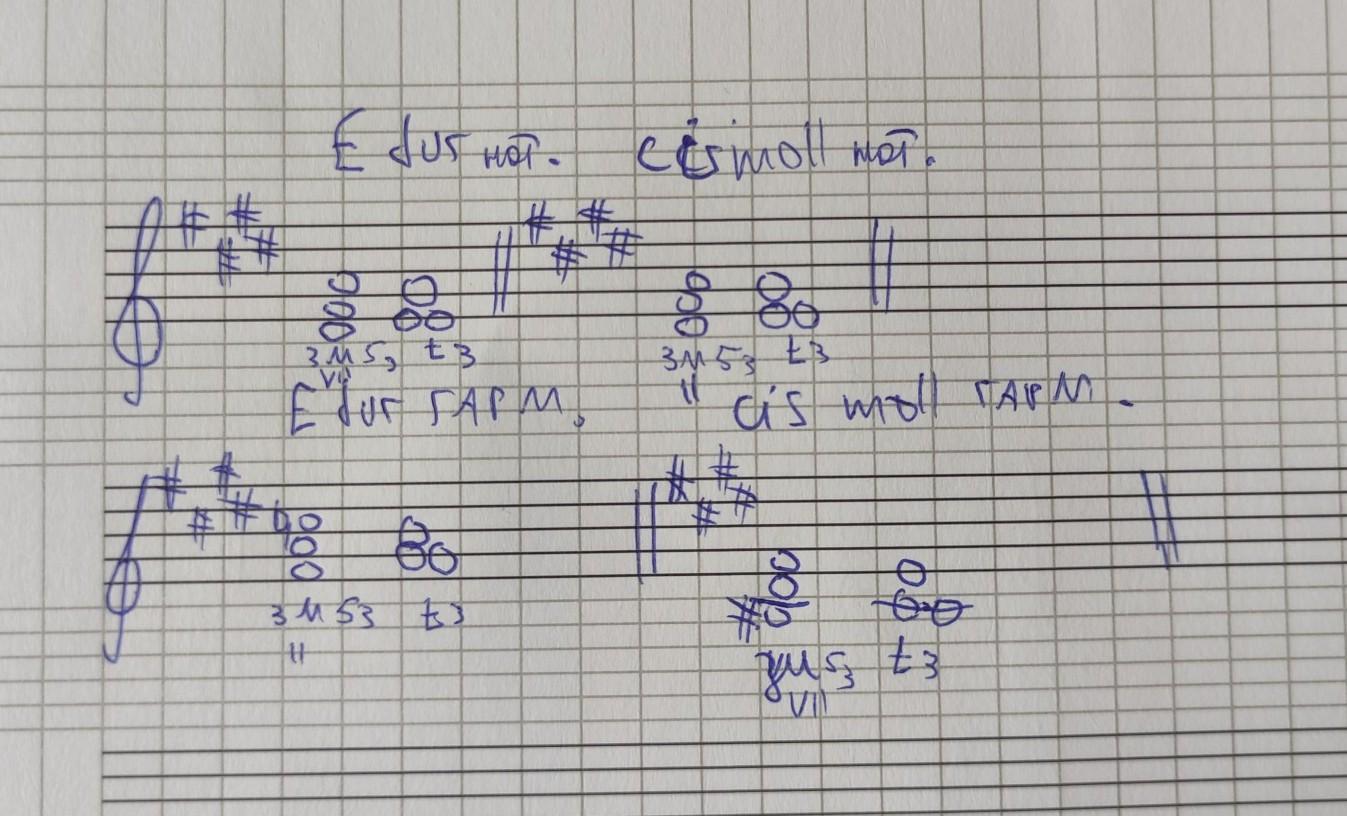 E dur нат. cis moll нат.
зм53 t3 зм53 t3
VII II
E dur гарм. cis moll гарм.
зм53 t3
II
ум53 t3
VII